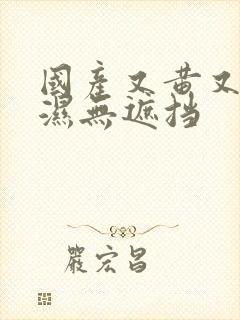 國產又黄又
濕無遮挡
嚴宏昌